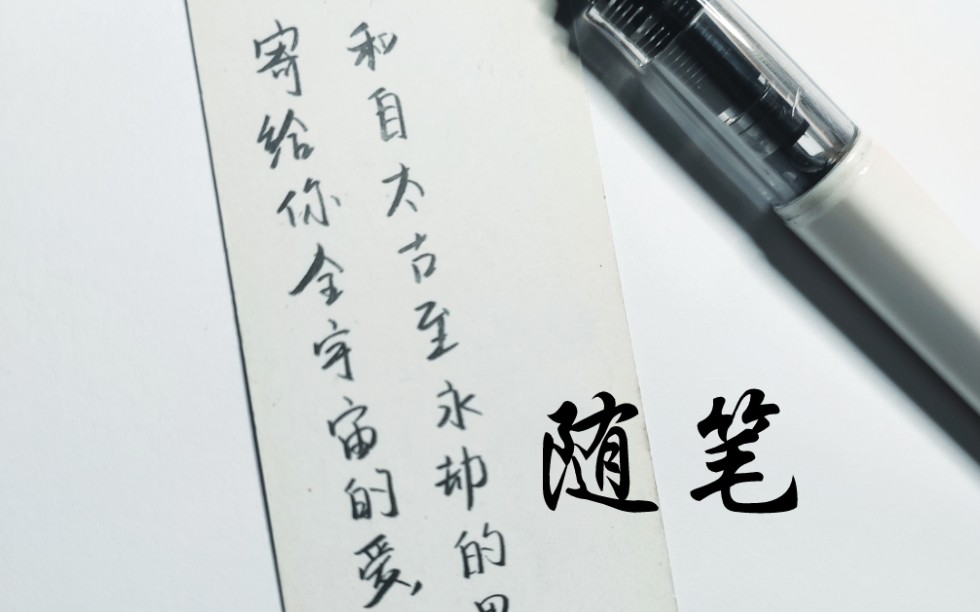 寄给你全宇宙的爱,
和自太古至永劫的
随笔